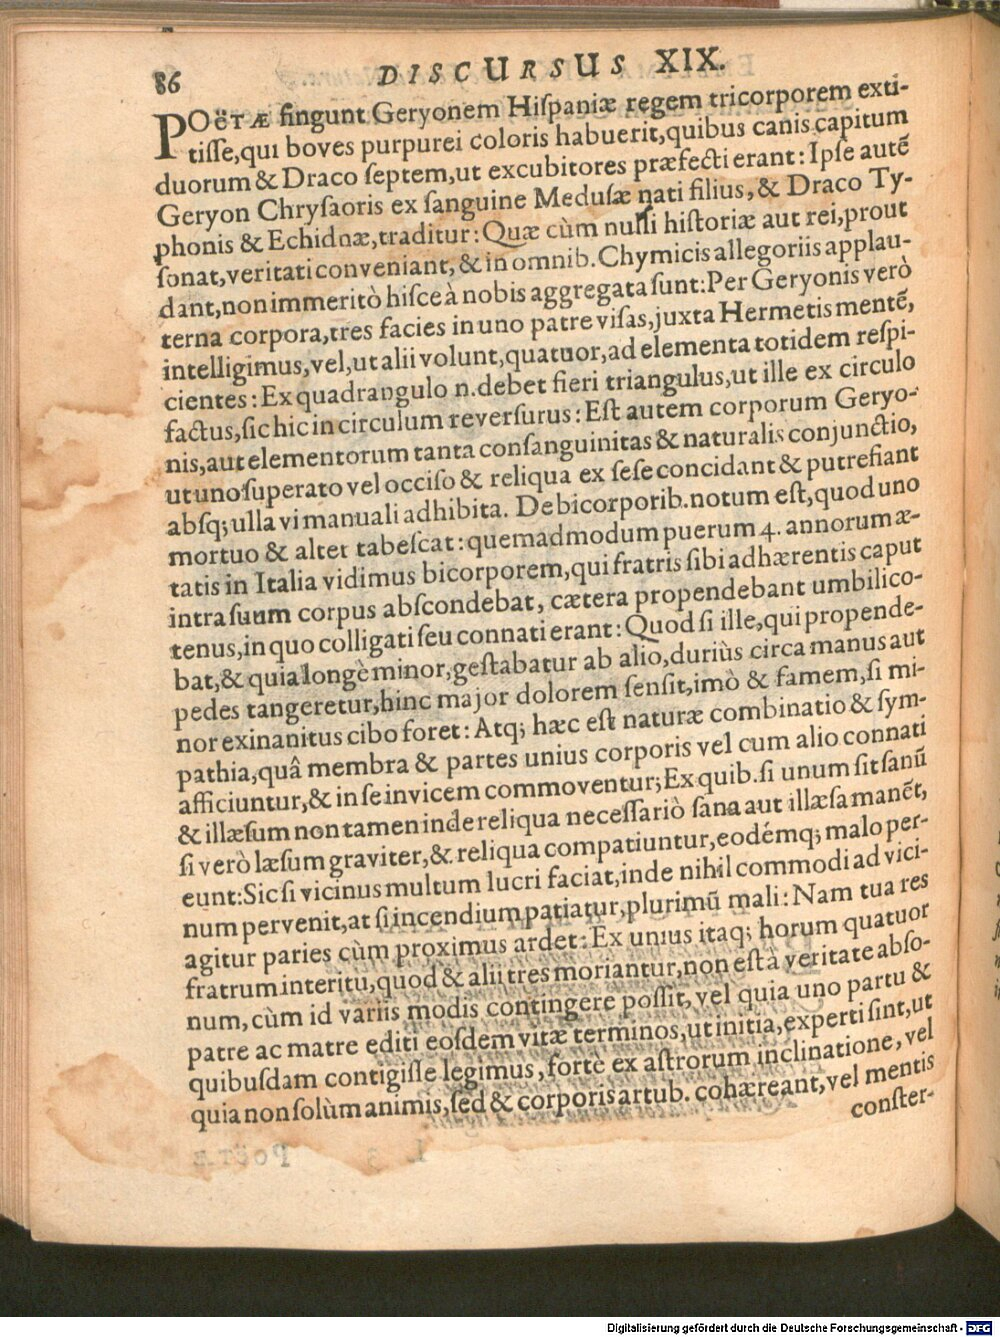 86 DISCURSUS XIX.
POëTÆ fingunt Geryonem Hiſpaniæ regem tricorporem exti-
tiſſe,qui boves purpurei coloris habuerit,quibus canis capitum
duorum & Draco ſeptem,ut excubitores præfecti erant: Ipſe autẽ
Geryon Chryſaoris ex ſanguine Meduſæ nati filius, & Draco Ty-
phonis & Echidnæ,traditur: Quæ cùm nulli hiſtoriæ aut rei,prout
ſonat,veritati conveniant, & in omnib. Chymicis allegoriis applau-
dant,non immeritò hiſce à nobis aggregata ſunt: Per Geryonis verò
terna corpora,tres facies in uno patre viſas,juxta Hermetis mentẽ,
intelligimus,vel,ut alii volunt,quatuor,ad elementa totidem reſpi-
cientes: Ex quadrangulo n.debet fieri triangulus,ut ille ex circulo
factus,ſic hic in circulum reverſurus: Eſt autem corporum Geryo-
nis,aut elementorum tanta conſanguinitas & naturalis conjunctio,
ut uno ſuperato vel occiſo & reliqua ex ſeſe concidant & putrefiant
abſq; ulla vi manuali adhibita. De bicorporib.notum eſt,quod uno
mortuo & alter tabeſcat: quemadmodum puerum 4. annorum æ-
tatis in Italia vidimus bicorporem,qui fratris ſibi adhærentis caput
intra ſuum corpus abſcondebat, cætera propendebant umbilico-
tenus,in quo colligati ſeu connati erant: Quod ſi ille,qui propende-
bat,& quia longè minor,geſtabatur ab alio,duriùs circa manus aut
pedes tangeretur,hinc major dolorem ſenſit,imò & famem,ſi mi-
nor exinanitus cibo foret: Atq; hæc eſt naturæ combinatio & ſym-
pathia,quâ membra & partes unius corporis vel cum alio connati
afficiuntur,& in ſe invicem commoventur; Ex quib. ſi unum ſit ſanũ
& illæſum non tamen inde reliqua neceſſariò ſana aut illæſa manẽt,
ſi verò læſum graviter,& reliqua compatiuntur,eodémq; malo per-
eunt: Sic ſi vicinus multum lucri faciat,inde nihil commodi ad vici-
num pervenit,at ſi incendium patiatur,plurimũ mali: Nam tua res
agitur paries cùm proximus ardet: Ex unius itaq; horum quatuor
fratrum interitu,quod & alii tres moriantur,non eſt à veritate abſo-
num, cùm id variis modis contingere poſſit, vel quia uno partu &
patre ac matre editi eoſdem vitæ terminos,ut initia,experti ſint,ut
quibuſdam contigiſſe legimus, fortè ex aſtrorum inclinatione, vel
quia non ſolùm animis,ſed & corporis artub. cohæreant,vel mentis
conſter-
Digitalisierung gefördert durch die Deutsche Forschungsgemeinschaft - DFG